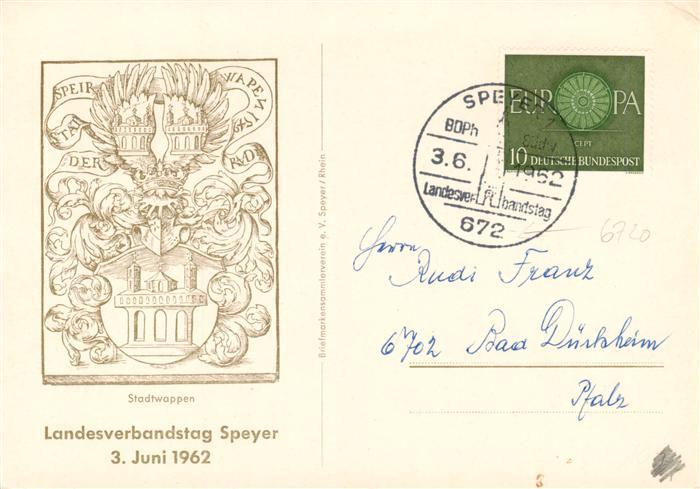 SPEIR
WAPEN
STAT
DER
Stadtwappen
Landesverbandstag Speyer
3. Juni 1962
Briefmarkensammlerverein e. V. Speyer/Rhein
SPEYER
BDPh
3.6. 1962
Landesverbandstag
672
EUROPA
CEPT
10 DEUTSCHE BUNDESPOST
6720
Herrn
Rudi Franz
6702 Bad Dürkheim
Pfalz